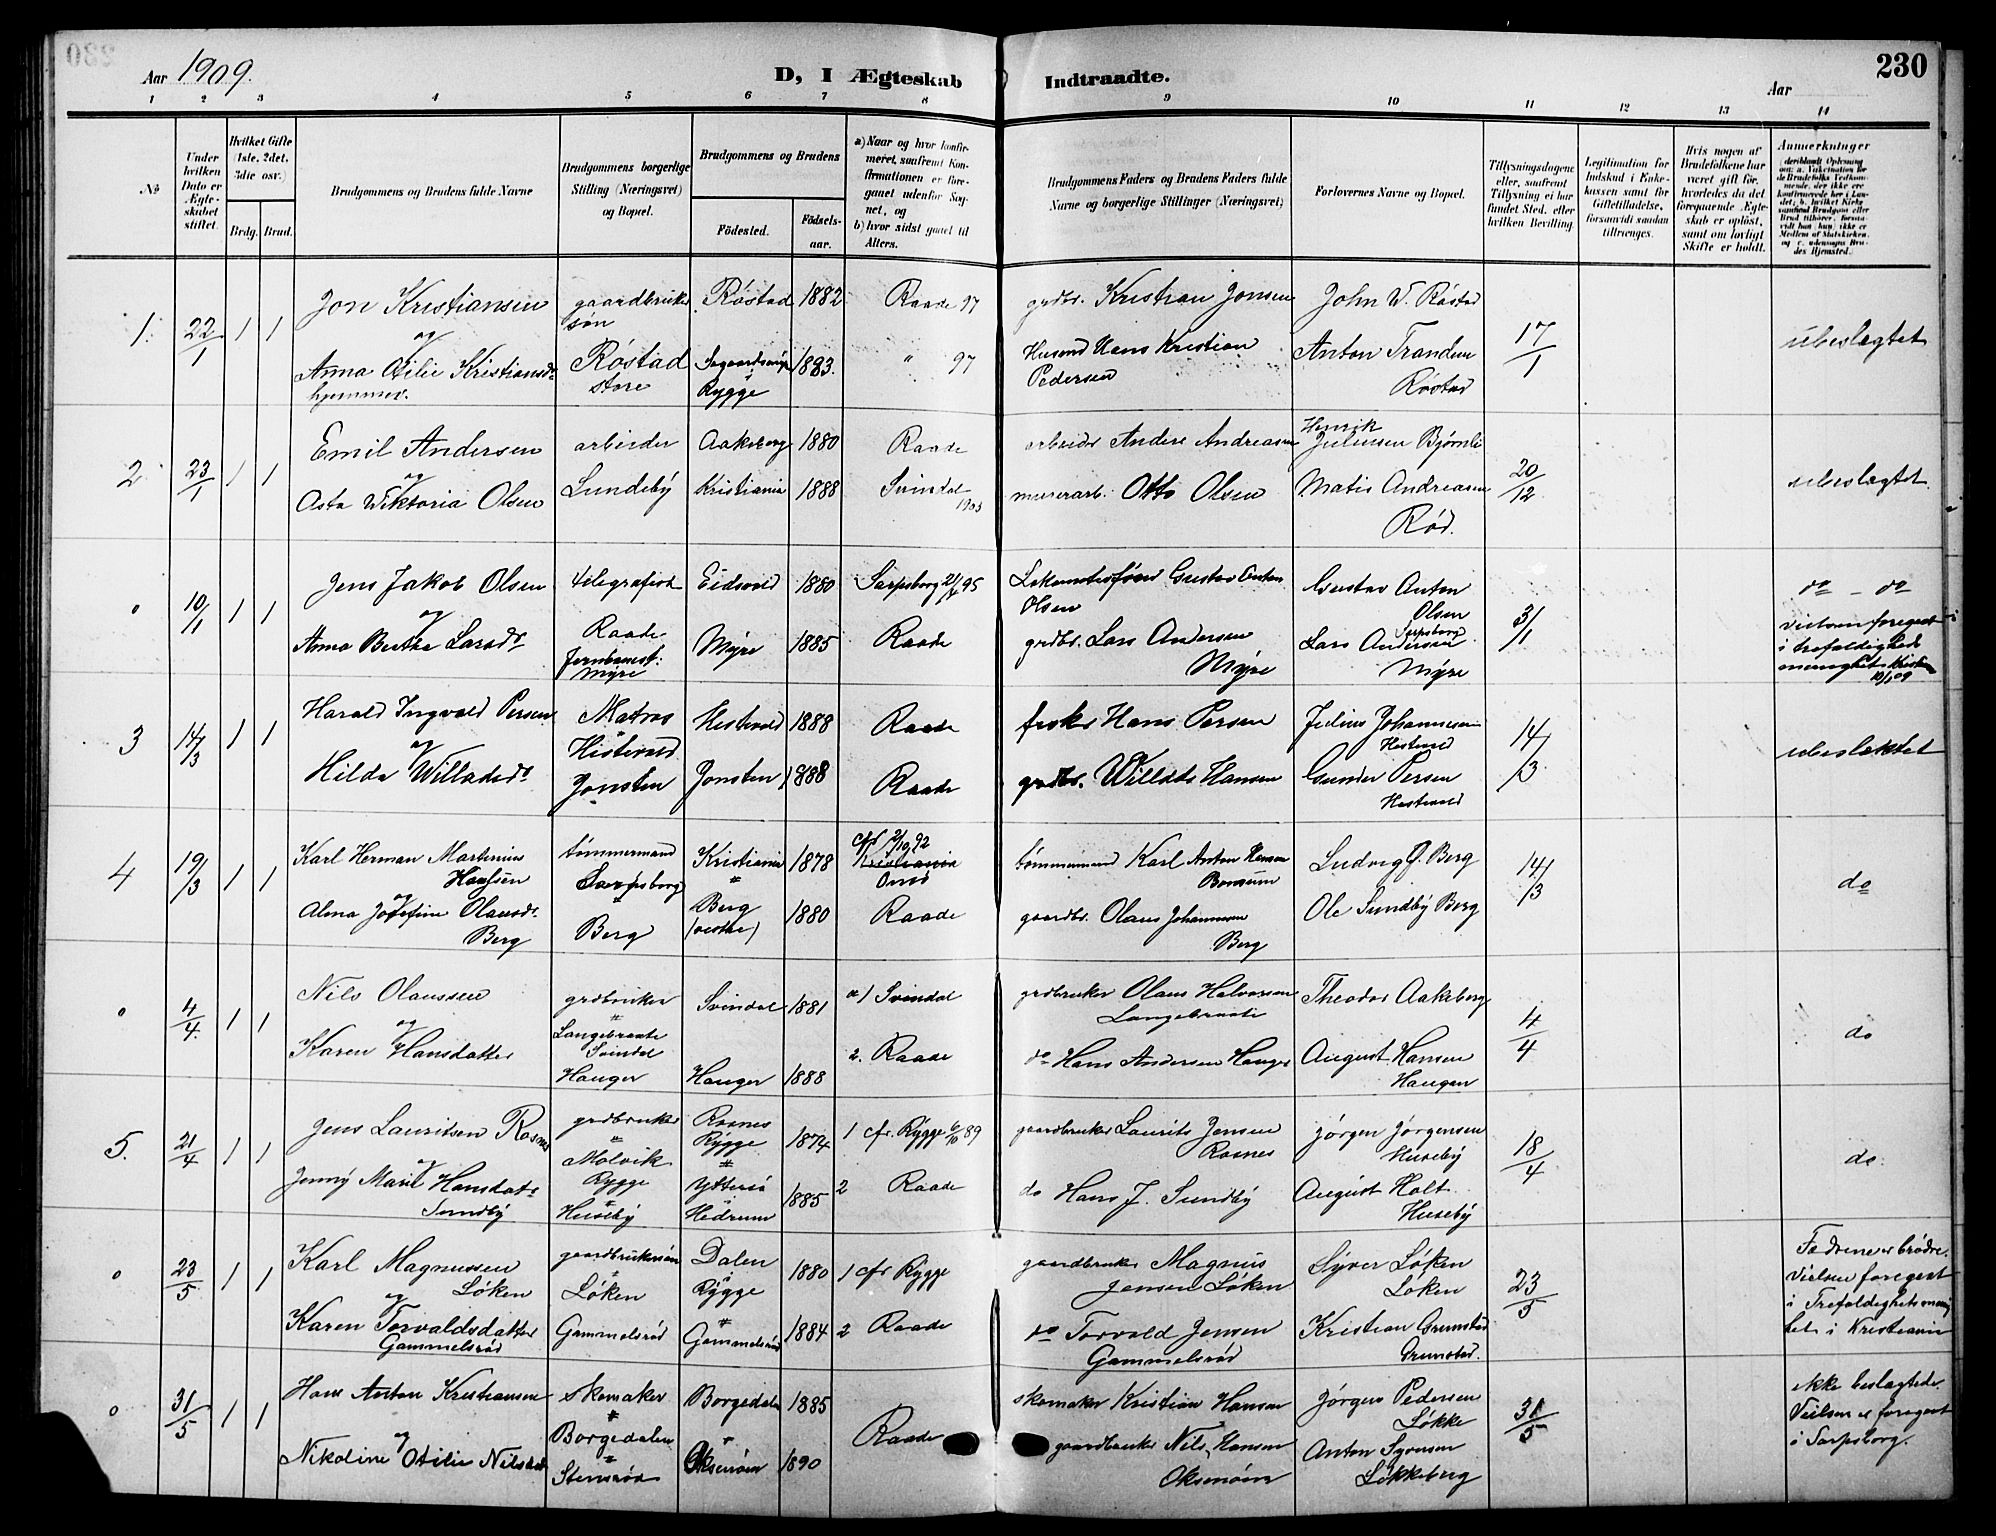 230
Aar 1909.
D, I Ægteskab Indtraadte.
Aar
1 2 3 4 5 6 7 8 9 10 11 12 13 14
No
Under hvilken Dato er Ægteskabet stiftet.
Hvilket Gifte (1ste, 2det, 3die osv.)
Brdg. Brud.
Brudgommens og Brudens fulde Navne
Brudgommens borgerlige Stilling (Næringsvei) og Bopæl.
Brudgommens og Brudens
Fødested.
Fødselsaar.
a) Naar og hvor konfirmeret, saafremt Konfirmationen er foregaaet udenfor Sognet, og
b) hvor sidst gaaet til Alters.
Brudgommens Faders og Brudens Faders fulde Navne og borgerlige Stillinger (Næringsvei)
Forlovernes Navne og Bopæl.
Tillysningsdagene eller, saafremt Tillysning ei har fundet Sted, efter hvilken Bevilling
Legitimation for Indskud i Enkekassen samt for Giftetilladelse, forsaavidt saadan tiltrænges.
Hvis nogen af Brudefolkene har været gift før, hvorledes da det foregaaende Ægteskab er opløst, samt om lovligt Skifte er holdt.
Anmerkninger
1. 22/1 1 1
Jon Kristiansen
og
Anna Otilie Kristiansd.
hjemmev.
gaardbruker
søn
Røstad
store
Røstad 1882
Rygge 1883.
Raade 97
" 97
grdbr. Kristian Jonsen
Husmd Hans Kristian
Pedersen
John W. Røstad
Anton Trandem
Røstad
17/1
ubeslegtet
2 23/1 1 1
Emil Andersen
og
Asta Wiktoria Olsen
arbeider
Lundeby
Aakeberg 1880
Kristiania 1888
Raade
Svindal
1903
arbeider Anders Andreasen
murerarb. Otto Olsen
Henrik
Julensen Bjørnli
Matis Andreasen
Rød.
20/12
ubeslegtet
" 10/1 1 1
Jens Jakob Olsen
og
Anna Berthe Larsdr
telegrafist
Raade
Jernbanest.
Myre
Eidsvold 1880
Myre 1885
Sarpsborg 95
Raade
Lokomotivfører Gustav Anton
Olsen
grdbr. Lars Andersen
Myre
Gustav Anton
Olsen
Sarpsborg
Lars Andersen
Myre
3/1
do - do
Vielsen foregaat
i trefoldighets
menighets Krist.
10/1 09
3 14/3 1 1
Harald Ingvald Persen
og
Hilda Willadsdr
Matros
Hestevold
Jonsten
Hestevold 1888
Jonsten 1888
Raade
Raade
fisker Hans Persen
grdbr. Willads Hansen
Julius Johannesen
Hestevold
Gunder Persen
Hestevold
14/3
ubeslektet
4 19/3 1 1
Karl Herman Martinius
Hansen
og
Alma Josefine Olausdr.
Berg
tømmermand
Sarpsborg
Berg
Kristiania 1878
Berg 1880
(vestre)
cfr 2/10 92
Kristiania
Onsø
Raade
tømmermand Karl Anton Hansen
gaardbr. Olaus Johannesen
Berg
Ludvig J. Berg
Ole Sundby Berg
14/3
do
" 4/4. 1 1
Nils Olaussen
og
Karen Hansdatter
grdbruker
Langebraate
Svindal
Hauger
Svindal 1881
Hauger 1888
a) Svindal
2. Raade
grdbruker Olaus Halvorsen
Langebraate
do Hans Andersen Hauger
Theodor Aakeberg
August Hansen
Haugen
4/4
do
5. 21/4 1 1
Jens Lauritsen Rosnes
og
Jenny Marie Hansdatr
Sundby
grdbruker
Molvik
Rygge
Huseby
Rosnes
Rygge 1874
Yttersø
Hedrum 1885
1 cfr. Rygge 6/10 89
2 Raade
gaardbruker Laurits Jensen
Rosnes
do Hans J. Sundby
Jørgen Jørgensen
Huseby
August Holt
Huseby
18/4
do.
" 23/5 1 1
Karl Magnussen
Løken
og
Karen Torvaldsdatter
Gammelsrød
gaardbrukersøn
Løken
Gammelsrød
Dalen
Rygge 1880
Gammelsrød 1884
1 cfr Rygge
2 Raade
gaardbruker Magnus
Jensen Løken
do Torvald Jensen
Gammelsrød
Syver Løken
Løken
Kristian Grimstad
Grimstad.
23/5
Fædrene er brødre.
Vielsen foregaat
i Trefoldighetsmenig
het i Kristiania
" 31/5 1 1
Hans Anton Kristiansen
og
Nikoline Otilie Nilsdatr
skomaker
Borgedalen
Stensrød
Borgedalen 1885
Oksenøen 1890
Raade
skomaker Kristian Hansen
gaardbruker Nils Hansen
Oksenøen
Jørgen Pedersen
Løkke
Anton Syversen
Løkkeberg
31/5
ikke beslegtede.
Vielsen er foregaat
i Sarpsborg.